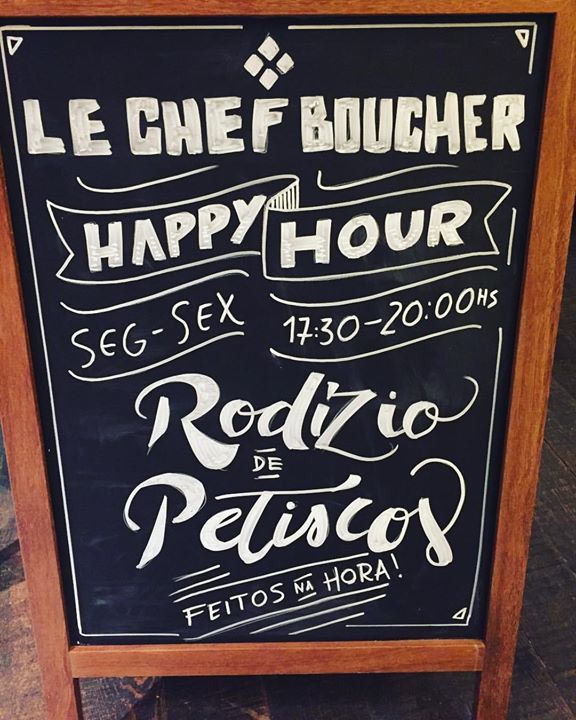 LE CHEF BOUCHER
HAPPY HOUR
SEG-SEX 17:30-20:00HS
Rodízio
DE
Petiscos
FEITOS NA HORA!